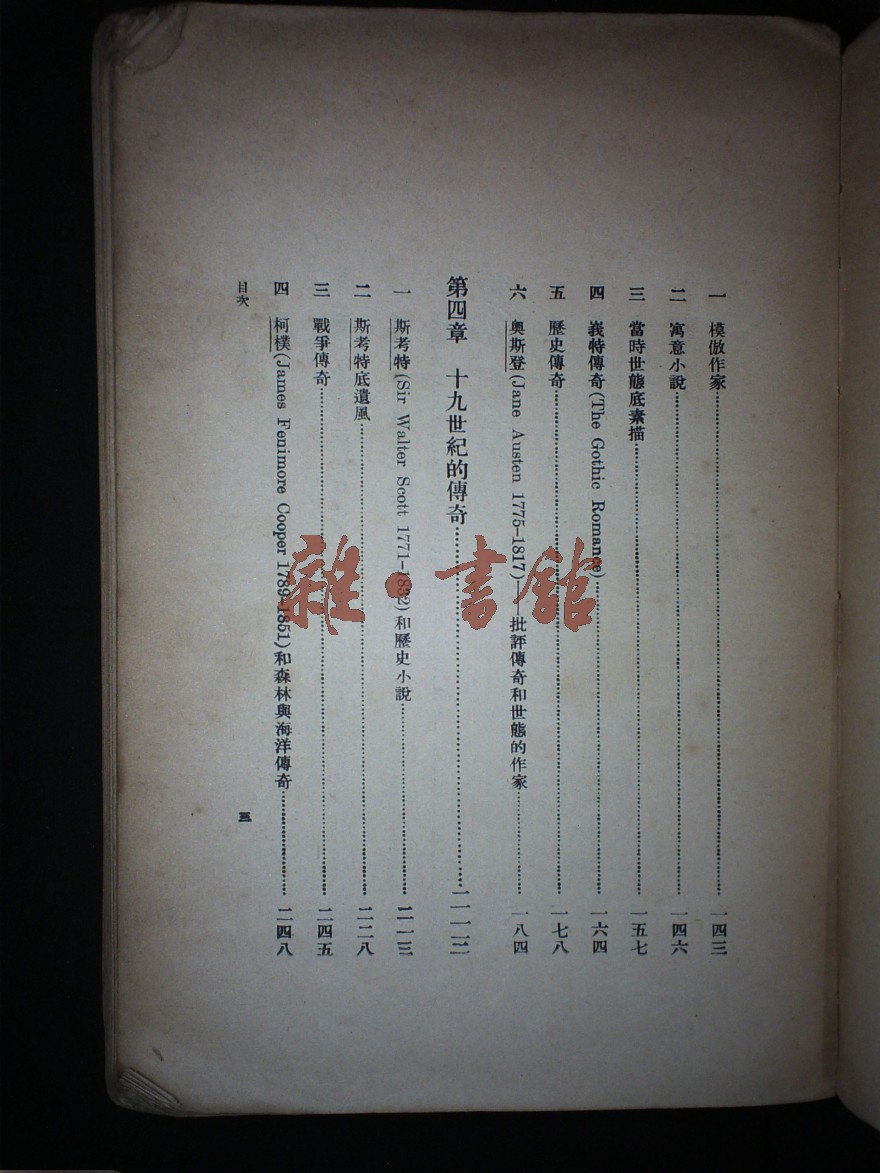 一 模倣作家……一四三
二 寓意小說……一四六
三 當時世態底素描……一五七
四 峩特傳奇(The Gothic Romance)……一六四
五 歷史傳奇……一七八
六 奧斯登(Jane Austen 1775–1817)——批評傳奇和世態的作家……一八四
第四章 十九世紀的傳奇……二一三
一 斯考特(Sir Walter Scott 1771–1832)和歷史小說……二一三
二 斯考特底遺風……二二八
三 戰爭傳奇……二四五
四 柯樸(James Fenimore Cooper 1789–1851)和森林與海洋傳奇……二四八
目次
三
雜·書館